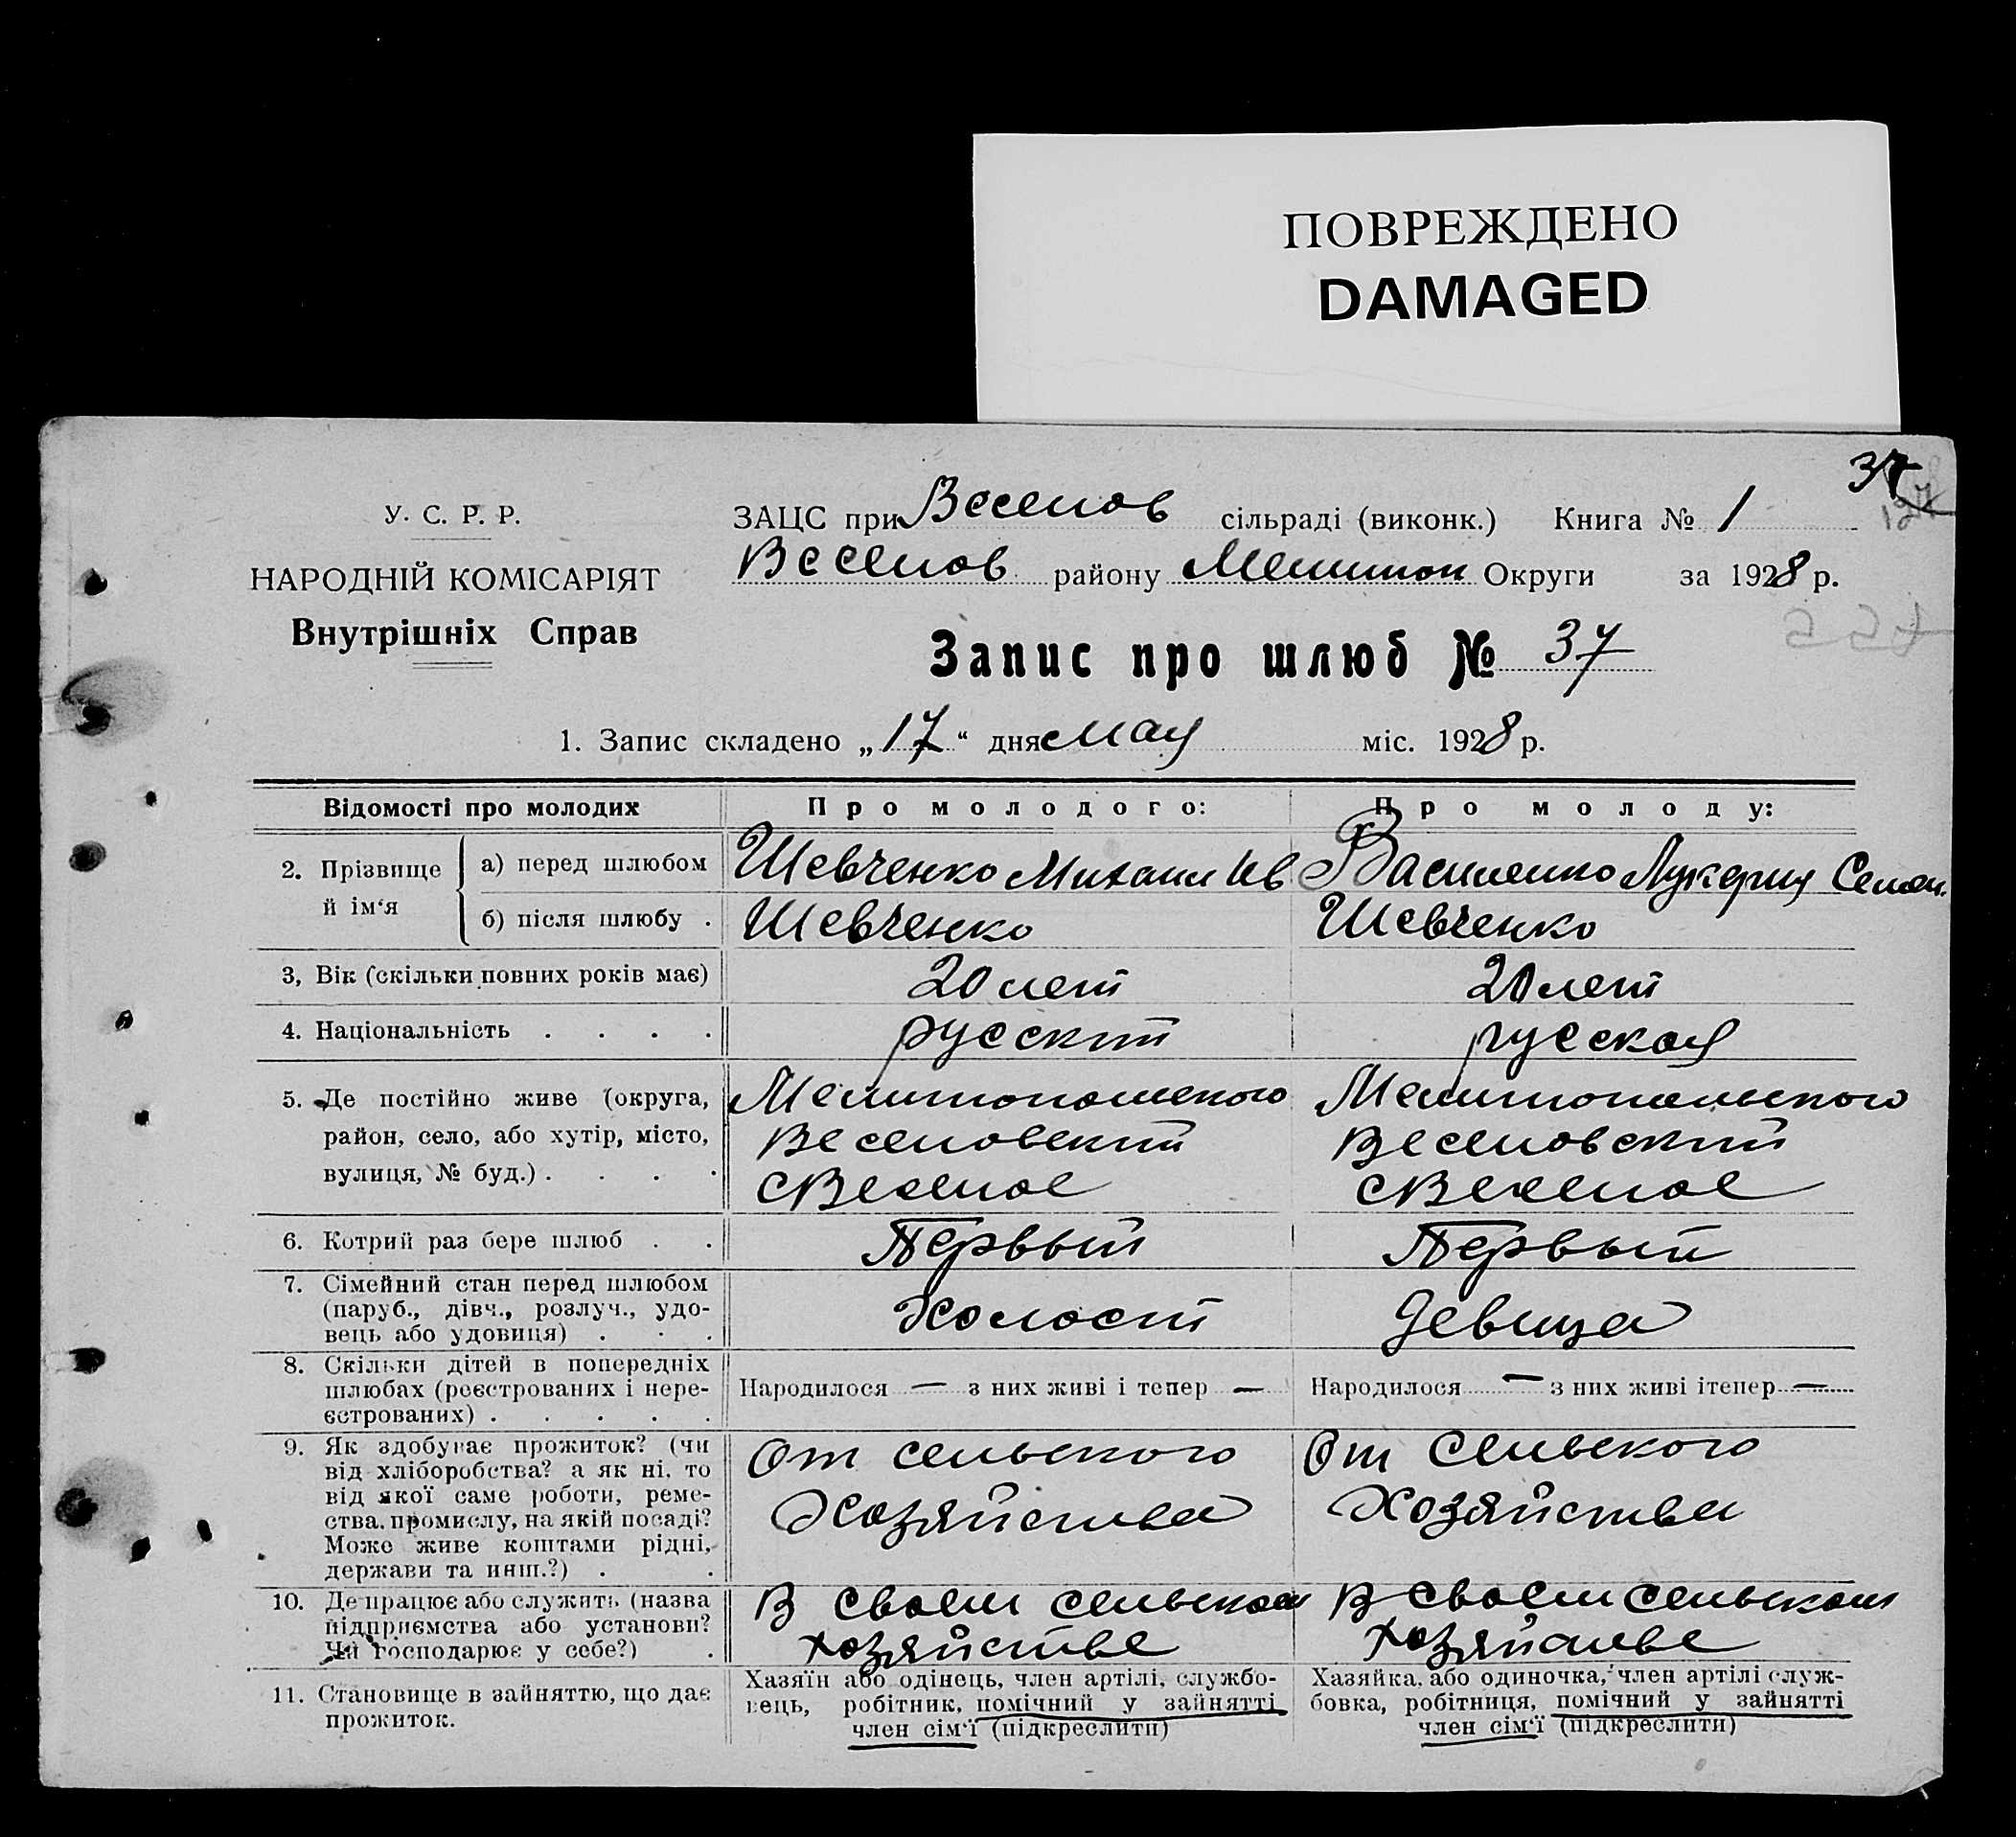 ПОВРЕЖДЕНО
DAMAGED
37
У. С. Р. Р.
НАРОДНІЙ КОМІСАРІЯТ
Внутрішніх Справ
ЗАЦС при Веселов сільраді (виконк.) Книга № 1
Веселов району Мелитоп Округи за 1928 р.
Запис про шлюб № 37
1. Запис складено „17“ дня мая міс. 1928 р.
Відомості про молодих
Про молодого:
Про молоду:
2. Прізвище й ім‘я
а) перед шлюбом
Шевченко Михаил Ив
Василенко Лукерия Семен.
б) після шлюбу .
Шевченко
Шевченко
3, Вік (скільки повних років має)
20 лет
20 лет
4. Національність . . . .
русский
русская
5. Де постійно живе (округа,
район, село, або хутір, місто,
вулиця, № буд.) . . . .
Мелитопольского
Веселовский
с Веселое
Мелитопольского
Веселовский
с Веселое
6. Котрий раз бере шлюб . .
Первый
Первый
7. Сімейний стан перед шлюбом
(паруб., дівч., розлуч., удо-
вець або удовиця) . . .
Холост
Девица
8. Скільки дітей в попередніх
шлюбах (реєстрованих і нере-
єстрованих) . . . . .
Народилося — з них живі і тепер —
Народилося — з них живі ітепер —
9. Як здобуває прожиток? (чи
від хліборобства? а як ні, то
від якої саме роботи, реме-
ства, промислу, на якій посаді?
Може живе коштами рідні,
держави та инш.?) . .
От сельского
Хозяйства
От Сельского
Хозяйства
10. Де працює або служить (назва
підприємства або установи?
Чи господарює у себе?) .
В своем сельском
хозяйстве
В своем сельском
хозяйстве
11. Становище в зайняттю, що дає
прожиток.
Хазяїн або одінець, член артілі, службо-
вець, робітник, помічний у зайнятті
член сім‘ї (підкреслити)
Хазяйка, або одиночка, член артілі служ-
бовка, робітниця, помічний у зайнятті
член сім‘ї (підкреслити)